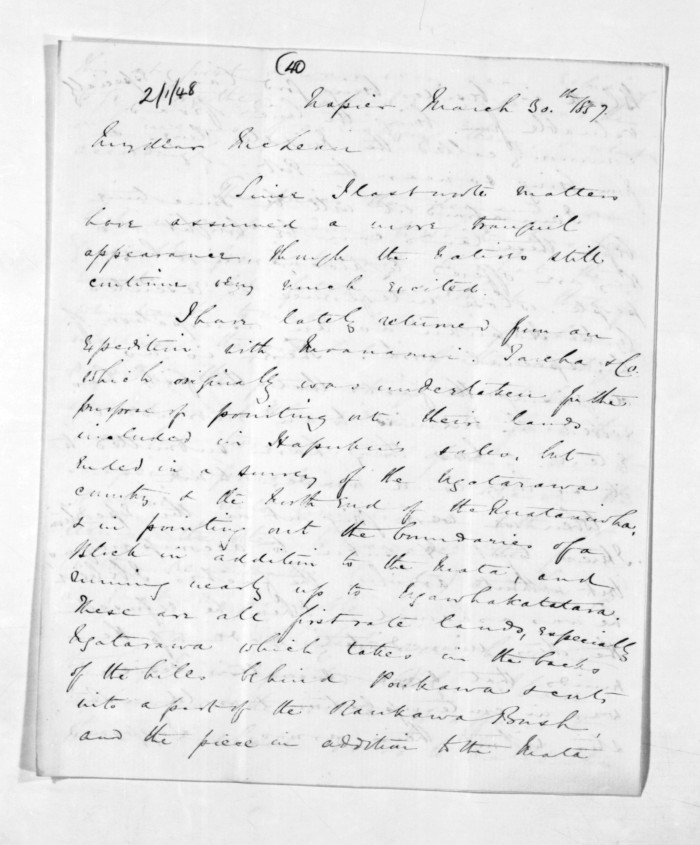 40
2/1/48
Napier March 30.th 1857.
My dear McLean
Since I last wrote matters
have assumed a more tranquil
appearance, though the natives still
continue very much excited.
I have lately returned from an
expedition with Moananui, Tareha & Co.
which originally was undertaken for the
purpose of pointing out their lands
included in Hapuku's sales, but
ended in a survey of the Ngatarawa
country & the North End of the
& in pointing out the boundaries of a
Block in addition to the Mata, and
running nearly up to Ngawhakatatara.
These are all first rate lands, especially
Ngatarawa which takes in the backs
of the hills behind Poukawa & cuts
into a part of the Raukawa Bush,
and the piece in addition to the Mata